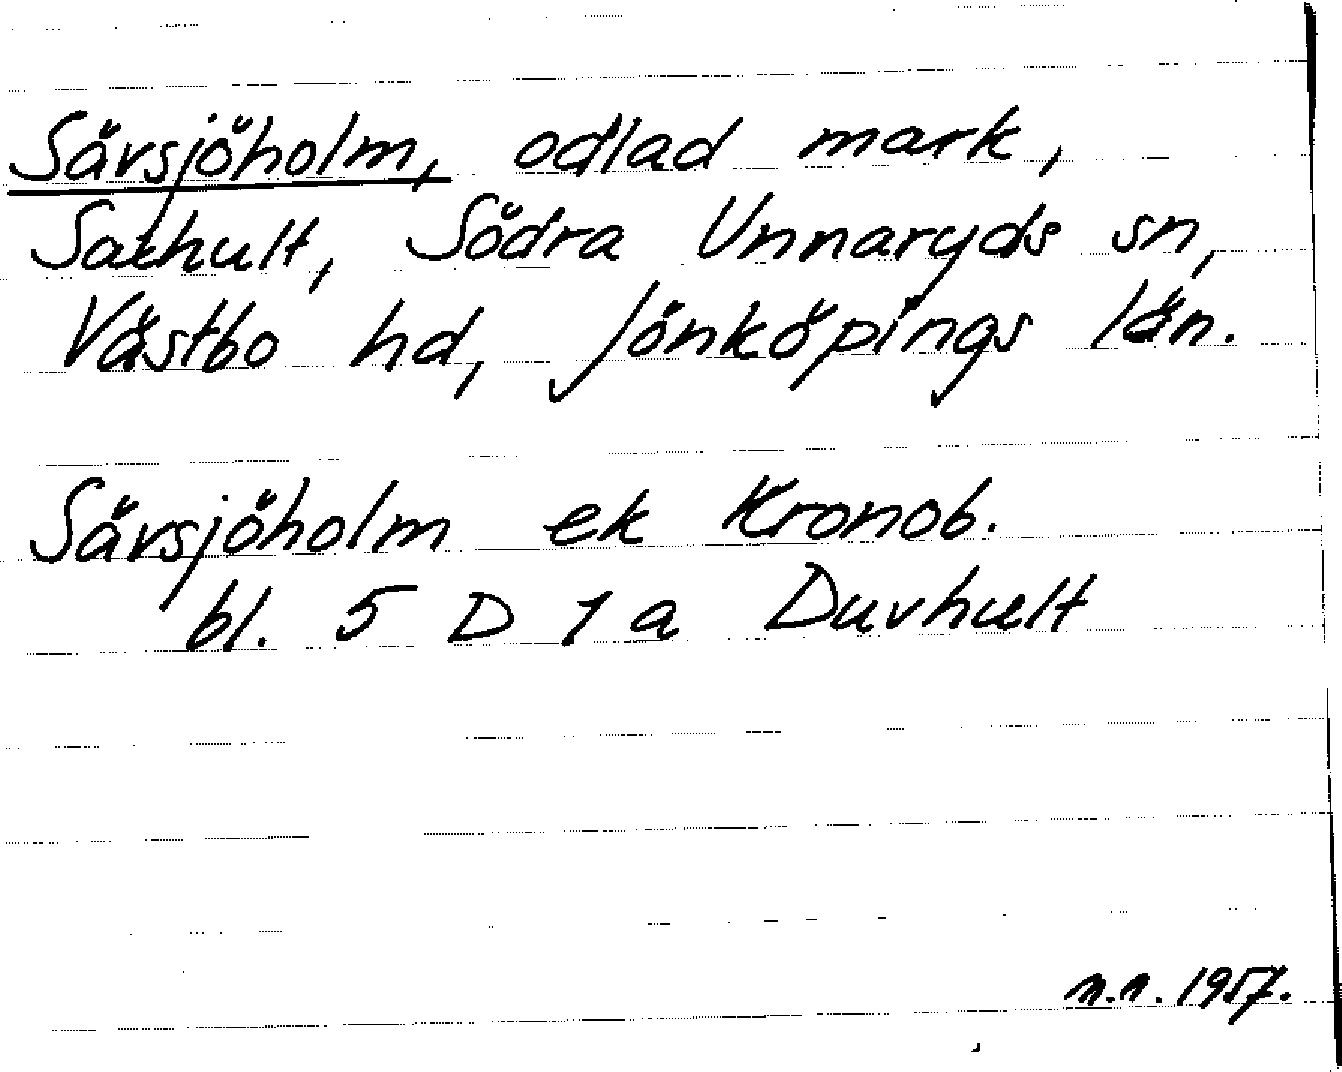 Sävsjöholm, odlad mark,
Saxhult, Södra Unnaryds sn,
Västbo hd, Jönköpings län.
Sävsjöholm ek Kronob.
bl. 5 D 1 a Duvhult
n.n. 1957.